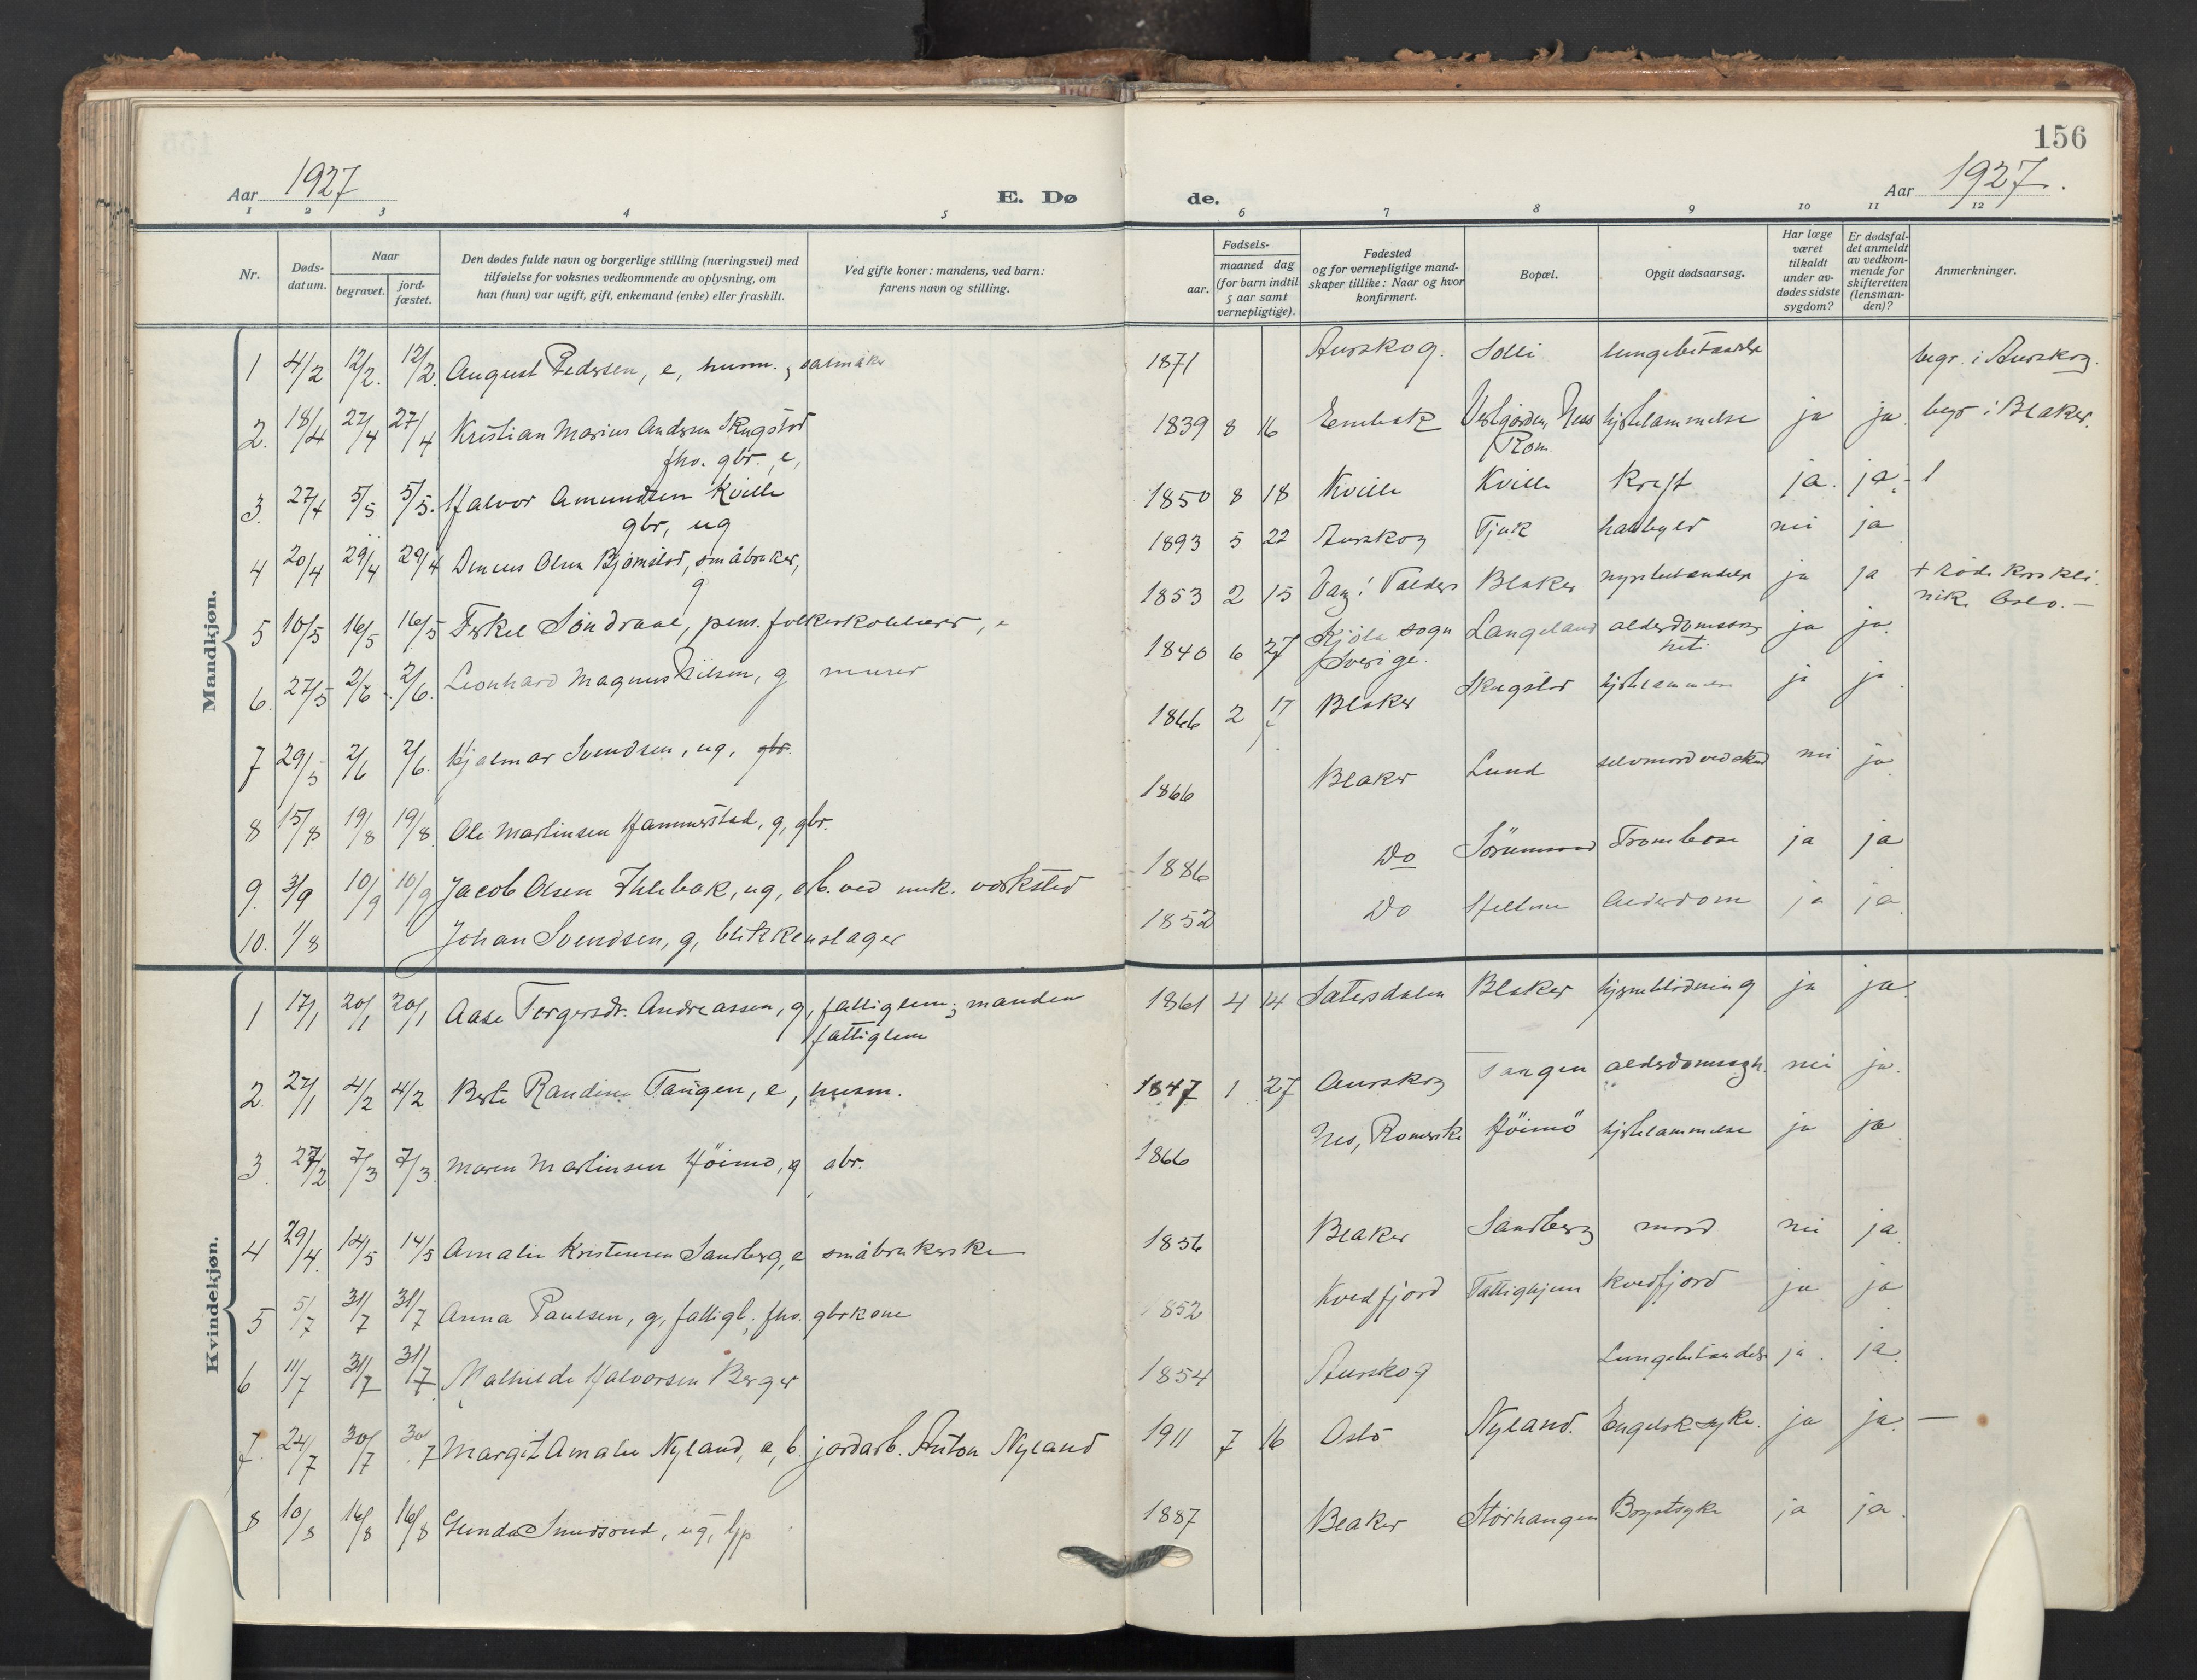 156
Aar 1927
E. Dø
de.
Aar 1927.
1 2 3 4 5 6 7 8 9 10 11 12
Nr.
Døds-
datum.
Naar
begravet.
jord-
fæstet.
Den dødes fulde navn og borgerlige stilling (næringsvei) med
tilføielse for voksnes vedkommende av oplysning, om
han (hun) var ugift, gift, enkemand (enke) eller fraskilt.
Ved gifte koner: mandens, ved barn:
farens navn og stilling.
Fødsels-
aar.
maaned dag
(for barn indtil
5 aar samt
vernepligtige).
Fødested
og for vernepligtige mand-
skaper tillike: Naar og hvor
konfirmert.
Bopæl.
Opgit dødsaarsag.
Har læge
været
tilkaldt
under av-
dødes sidste
sygdom?
Er dødsfal-
det anmeldt
av vedkom-
mende for
skifteretten
(lensman-
den)?
Anmerkninger.
Mandkjøn.
1 4/2 12/2. 12/2. August Pedersen, e, husm., salmaker
2. 18/4 27/4 27/4 Kristian Marius Andersen Skugstad
fho. gbr., e,
3. 27/4 5/5 5/5. Halvor Amundsen Kville
gbr, ug
4 20/4 29/4 29/4 Olsen Bjørnstad, småbruker,
g
5 10/5 16/5 16/5 Terkel Söndraal, pens. folkeskolelærer, e
6. 27/5 2/6 2/6. Leonhard Magnus Nilsen, g murer
7 29/5 2/6 2/6. Hjalmar Svendsen, ug, gbr.
8 15/8 19/8 19/8. Ole Martinsen Hammerstad, g, gbr.
9. 3/9 10/9 10/9 Jacob Olsen Ihlebak, ug, arb. ved mek. verksted
10. 1/8 Johan Svendsen, g, blikkenslager
Kvindekjøn.
1 17/1 20/1 20/1 Aase Torgersdr. Andreassen, g, fattiglem; manden
fattiglem
2. 27/1 4/2 4/2 Berte Randine Tangen, e, husm.
3. 27/2 7/3 7/3. Maren Martinsen Höimo, g gbr.
4 29/4. 14/5 14/5 Amalie Kristensen Sandberg, e småbrukerske
5 5/7 31/7 31/7 Anna Paulsen, g, fattigl. fho. gbrkone
6 11/7 31/7 31/7 Mathilde Halvorsen Berger
7. 24/7 30/7 30/7 Margit Amalie Nyland, a, b. jordarb. Anton Nyland
8 10/8 16/8 16/8 Gunda Smedsrud, ug,
1871 Aurskog. Solli lungebetændelse begr. i Aurskog.
1839 8 16 Enebak Vestgarden, Ness hjertelammelse ja ja begr i Blaker.
Rom.
1850 8 18 Kville Kville kreft ja. ja.
1893 5 22 Aurskog Tjuk halsbyld nei ja
1853 2 15 Vang i Valders Blaker nyrebetændelse ja ja + Röde Kors kli-
nik. Oslo. —
1840 6 27 Sogn Langeland alderdomssvag ja ja.
Sverige. het.
1866 2 17 Blaker Skugstad hjertelammelse ja ja.
1866 Blaker Lund selvmord ved skud nei ja.
1886 Do Sörumsand Trombose ja ja
1852 Do Alderdom ja ja.
1861 4 14 Satersdalen Blaker hjerneblödning ja ja.
1847 1 27 Aurskog Tangen alderdomssvgh. nei ja.
1866 Nes, Romerike Höimo hjertelammelse ja ja.
1856 Blaker Sandberg mord nei ja.
1852 Kvedfjord Fattighjem Kvedfjord ja ja.
1854 Aurskog Lungebetændelse ja. ja.
1911 7 16 Oslo Nyland. Engelsk syke. ja ja. —
1887 Blaker Störhaugen Brystsyke ja ja.